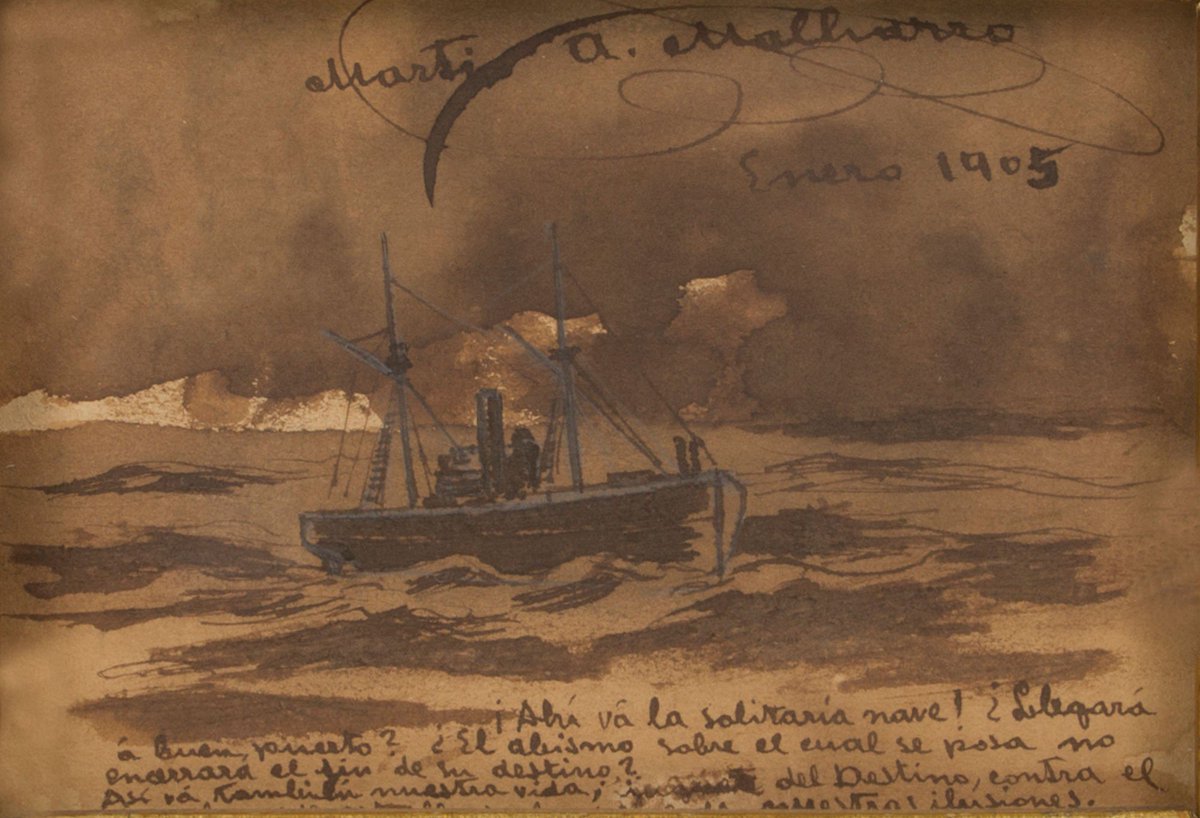 Martin A. Malharro
Enero 1905
¡Ahí vá la solitaría nave! ¿Llegará
á buen puerto? ¿El abismo sobre el cual se posa no
encerrará el fin de su destino?
Así vá, también nuestra vida, juguete del Destino, contra el
nuestras ilusiones.